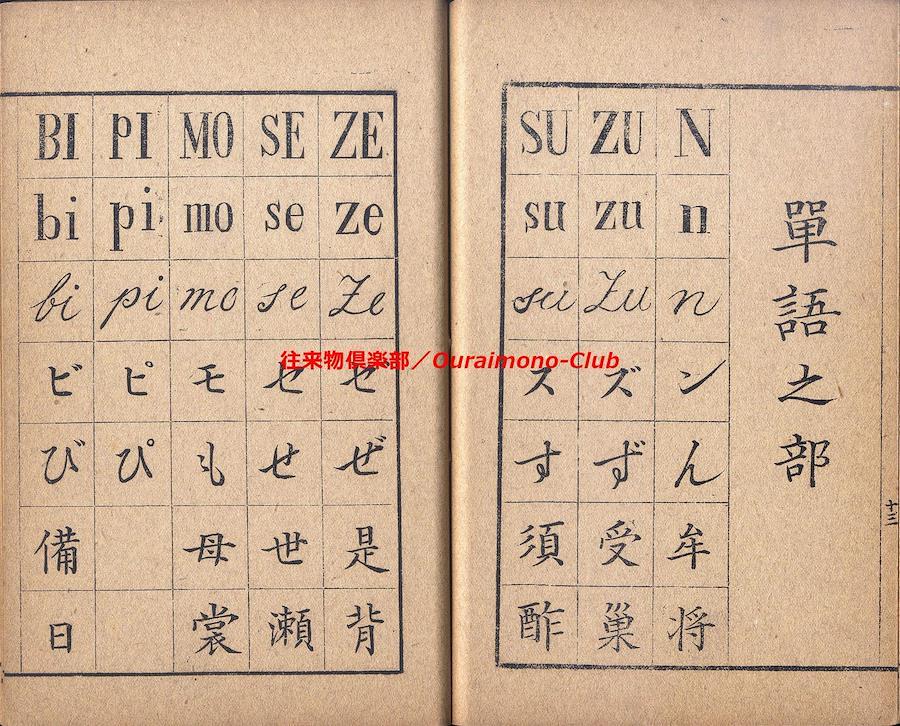 單語之部
十三
N ZU SU
n zu su
n Zu su
ン ズ ス
ん ず す
牟 受 須
将 巢 酢
ZE SE MO PI BI
ze se mo pi bi
Ze se mo pi bi
ゼ セ モ ピ ビ
ぜ せ も ぴ び
是 世 母 備
背 瀬 裳 日
往来物倶楽部／Ouraimono-Club